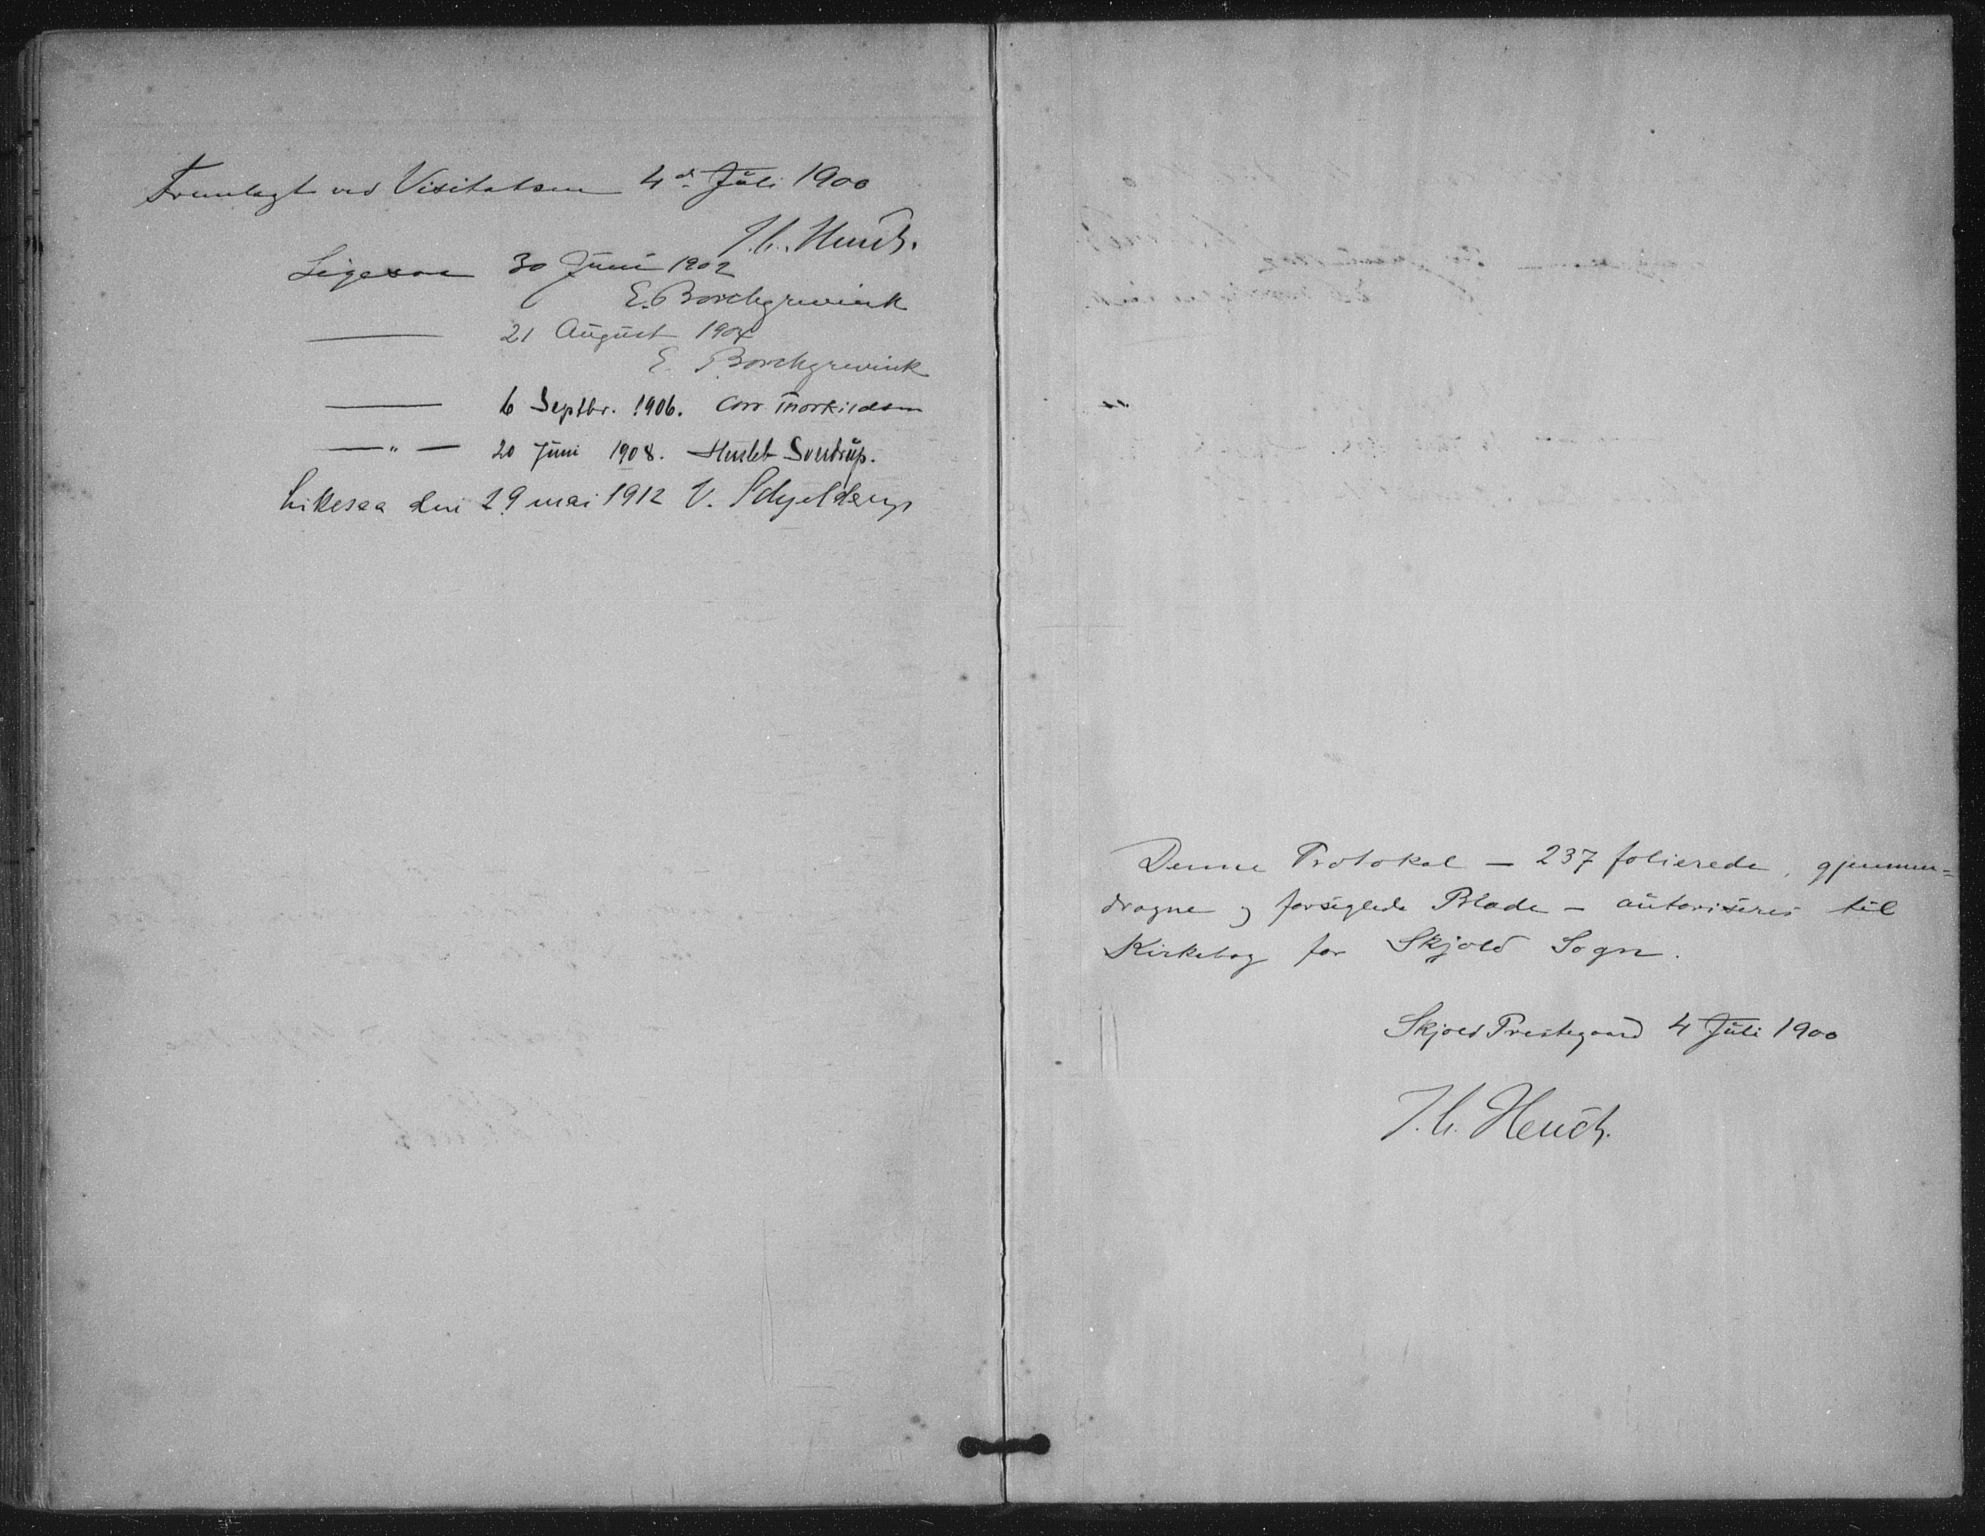 Fremlagt ved Visitatsen 4d. Juli 1900
J. C. Heuch.
Ligesaa 30 Juni 1902
E. Borchgrevink
—— 21 August 1904
E. Borchgrevink
—— 6 Septbr. 1906. Corn Thorkildsen
— " — 20 Juni 1908. Sverdrup.
Likesaa den 29 mai 1912 V. Schjelderup
Denne Protokol — 237 folierede, gjennem=
dragne og forseglede Blade — autoriseres til
Kirkebog for Skjold Sogn.
Skjold Prestegaard 4 Juli 1900
J. C. Heuch.